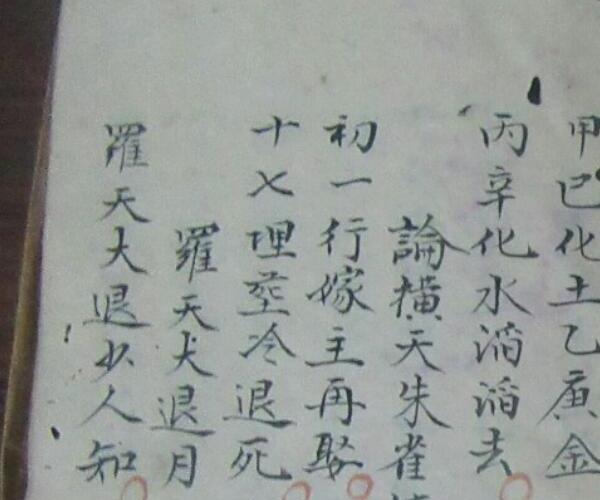 甲巳化土乙庚金
丙辛化水滔滔去
論横天朱雀
初一行嫁主再娶
十七埋塟冷退死
羅天大退月
羅天大退少人知